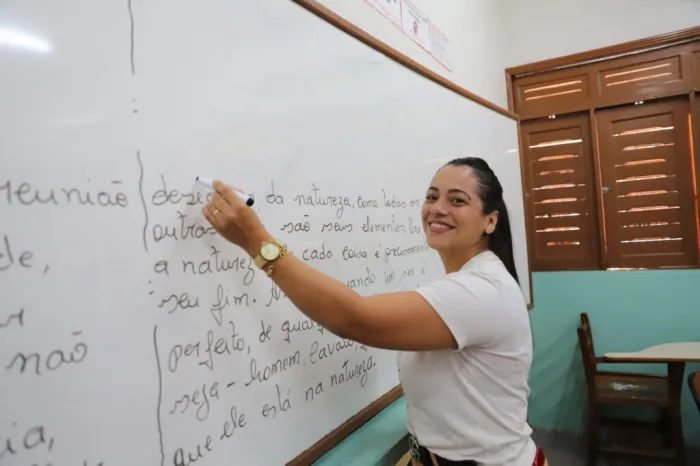 reunião
de,
não
ia,
da natureza, como todas as
outras são seus elementos.
a natureza cada coisa é precisamente
seu fim. quando um ser é
perfeito, de
seja - homem, cavalo,
que ele está na natureza.